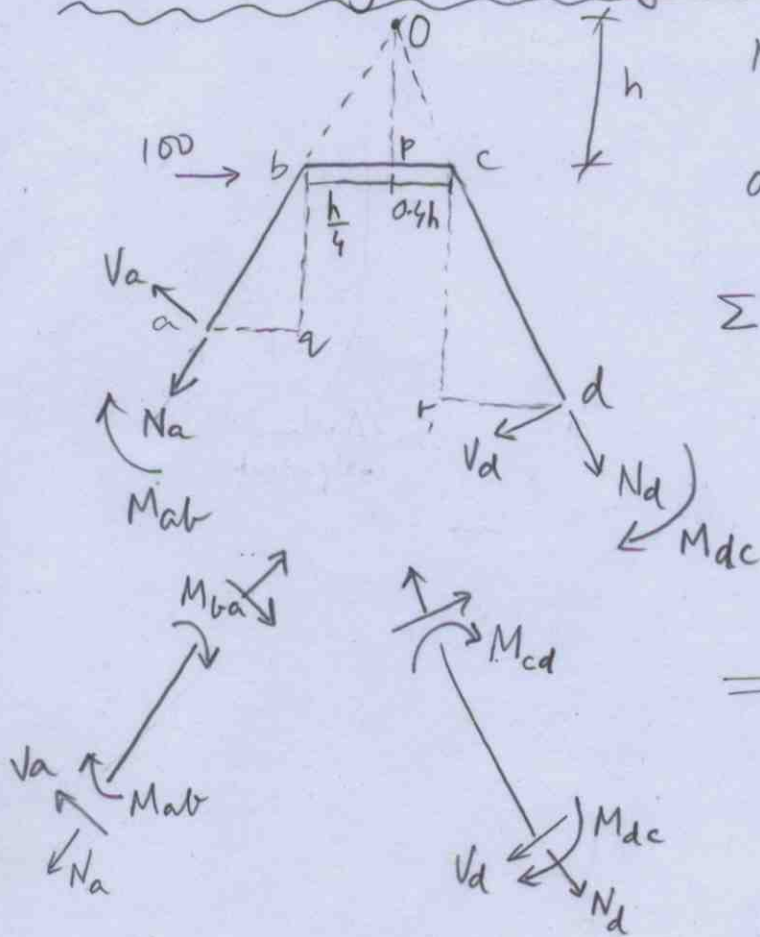 O
h
100
b
P
c
h/4
0.4h
Va
a
q
d
r
Na
Vd
Nd
Mab
Mdc
Mba
Mcd
Va
Mab
Mdc
Na
Vd
Nd
Σ
=